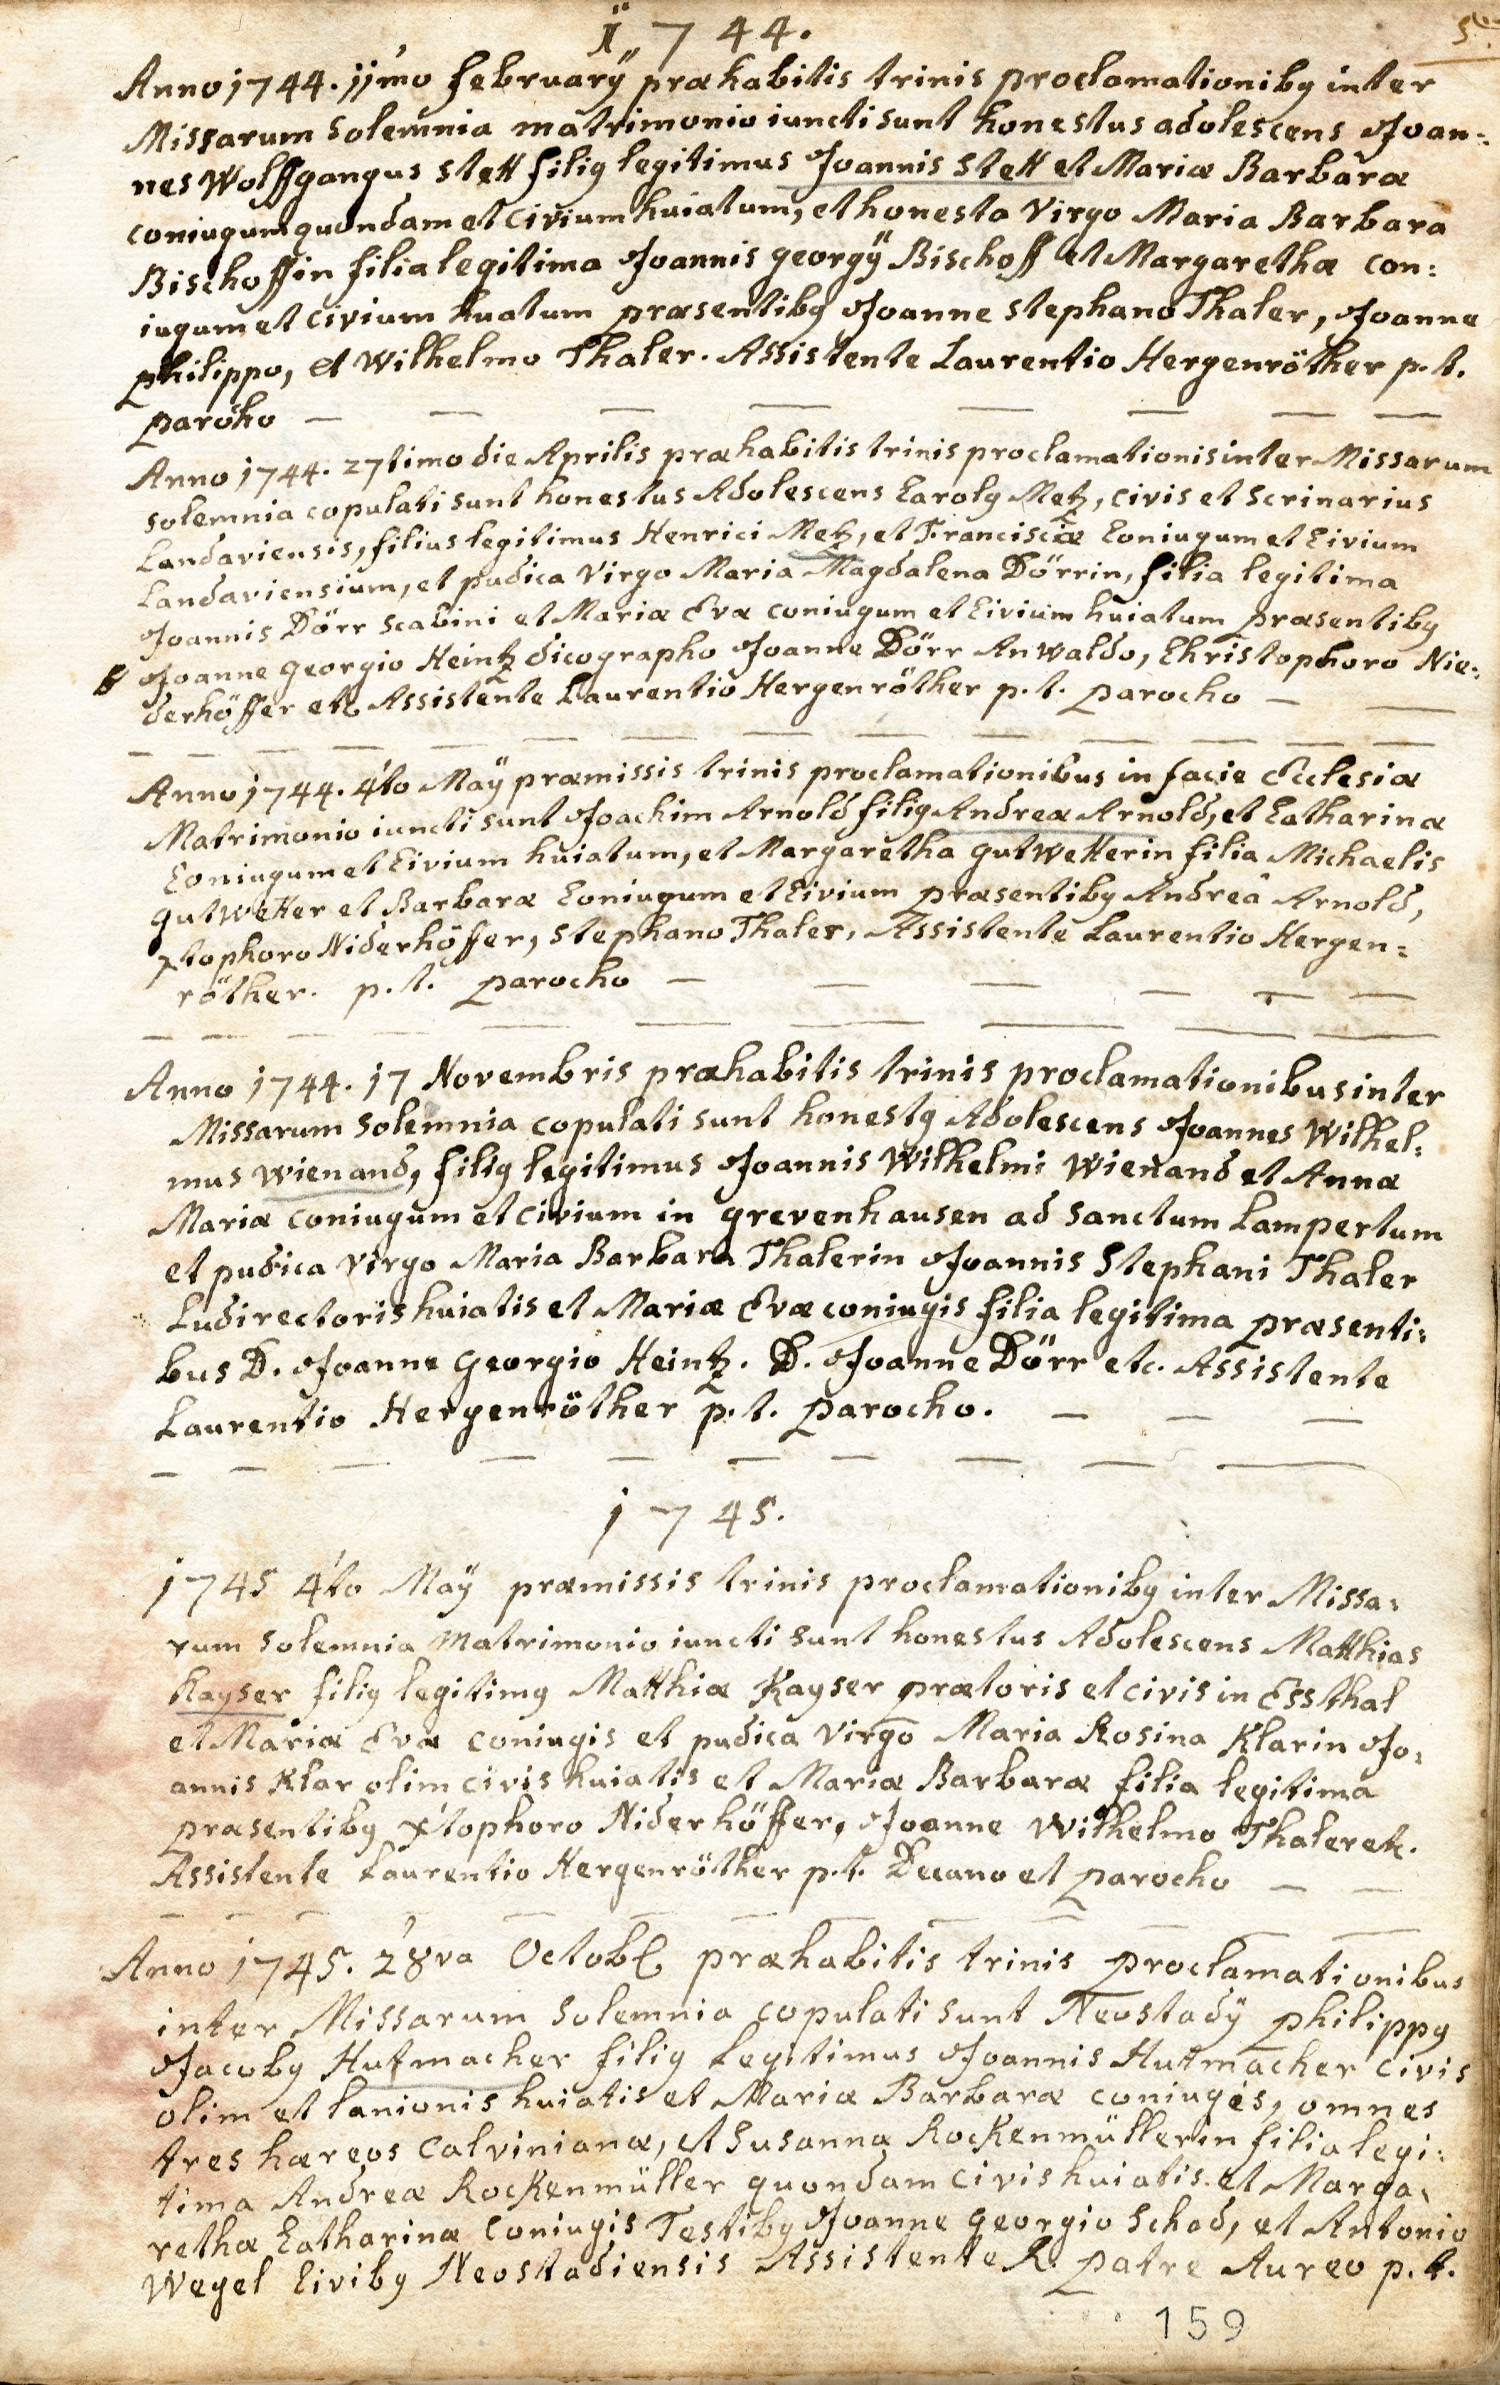 1744.
Anno 1744. 11mo februarÿ præhabitis trinis proclamationibq inter
Missarum Solemnia matrimonio iuncti sunt honestus adolescens Joan=
nes Wolffgangus Stett filiq legitimus Joannis Stett et Mariæ Barbâræ
coniugum quondam et Civium huiatum, et honesta Virgo Maria Barbara
Bischoffin filia legitima Joannis georgÿ Bischoff et Margarethæ con:
iugum et Civium huatum præsentibq Joanne Stephano Thaler, Joanne
philippo, et Wilhelmo Thaler. Assistente Laurentio Hergenröther p. t.
parôho
Anno 1744. 27timo die Aprilis præhabitis trinis proclamationis inter Missarum
solemnia copulati sunt honestus Adolescens Carolq Metz, civis et Scrinarius
Landaviensis, filius legitimus Henrici Metz, et Franciscæ Coniugum et Civium
Landaviensium, et pudica Virgo Maria Magdalena Dörrin, filia legitima
Joannis Dörr Scabini et Mariæ Evæ coniugum et Civium huiatum præsentibq
Joanne georgio Heintz dicographo Joanne Dörr Anwaldo, Christophoro Nie=
derhöffer etc Assistente Laurentio Hergenröther p. t. parocho
Anno 1744. 4to Maÿ præmissis trinis proclamationibus in facie Ecclesiæ
Matrimonio iuncti sunt Joachim Arnold filiq Andreæ Arnold, et Catharinæ
Coniugum et Civium huiatum, et Margaretha gutwetterin filia Michaelis
gutwetter et Barbaræ Coniugum et Civium præsentibq Andreâ Arnold,
xtophoro Niderhöffer, Stephano Thaler, Assistente Laurentio Hergen=
röther. p. t. parocho
Anno 1744. 17 Novembris præhabitis trinis proclamationibus inter
Missarum Solemnia copulati sunt honestq Adolescens Joannes Wilhel:
mus Wienand, filiq legitimus Joannis Wilhelmi Wienand et Annæ
Mariæ coniugum et civium in grevenhausen ad Sanctum Lampertum
et pudica virgo Maria Barbara Thalerin Joannis Stephani Thaler
Ludirectoris huiatis et Mariæ Evæ coniugis filia legitima præsenti:
bus D. Joanne georgio Heintz. D. Joanne Dörr etc. Assistente
Laurentio Hergenröther p. t. parocho.
1745.
1745 4to Maÿ præmissis trinis proclamationibq inter Missa:
rum Solemnia Matrimonio iuncti sunt honestus Adolescens Matthias
Kayser filiq legitimq Matthiæ Kayser prætoris et civis in Essthal
et Mariæ Evæ coniugis et pudica Virgo Maria Rosina Klarin Jo:
annis Klar olim civis huiatis et Mariæ Barbaræ filia legitima
præsentibq xtophoro Niderhöffer, Joanne Wilhelmo Thaler etc.
Assistente Laurentio Hergenröther p. t. Decano et parocho
Anno 1745. 28va Octob præhabitis trinis proclamationibus
inter Missarum Solemnia copulati sunt Neostadÿ philippq
Jacobq Hutmacher filiq Legitimus Joannis Hutmacher civis
olim et lanionis huiatis et Mariæ Barbaræ coniugis, omnes
tres hæreos Calvinianæ, et Susanna Rockenmüllerin filia legi:
tima Andreæ Rockenmüller quondam civis huiatis et Marga:
rethæ Catharinæ coniugis Testibq Joanne georgio Schad, et Antonio
Wegel Civibq Neostadiensis Assistente R. patre Aureo p. t.
159